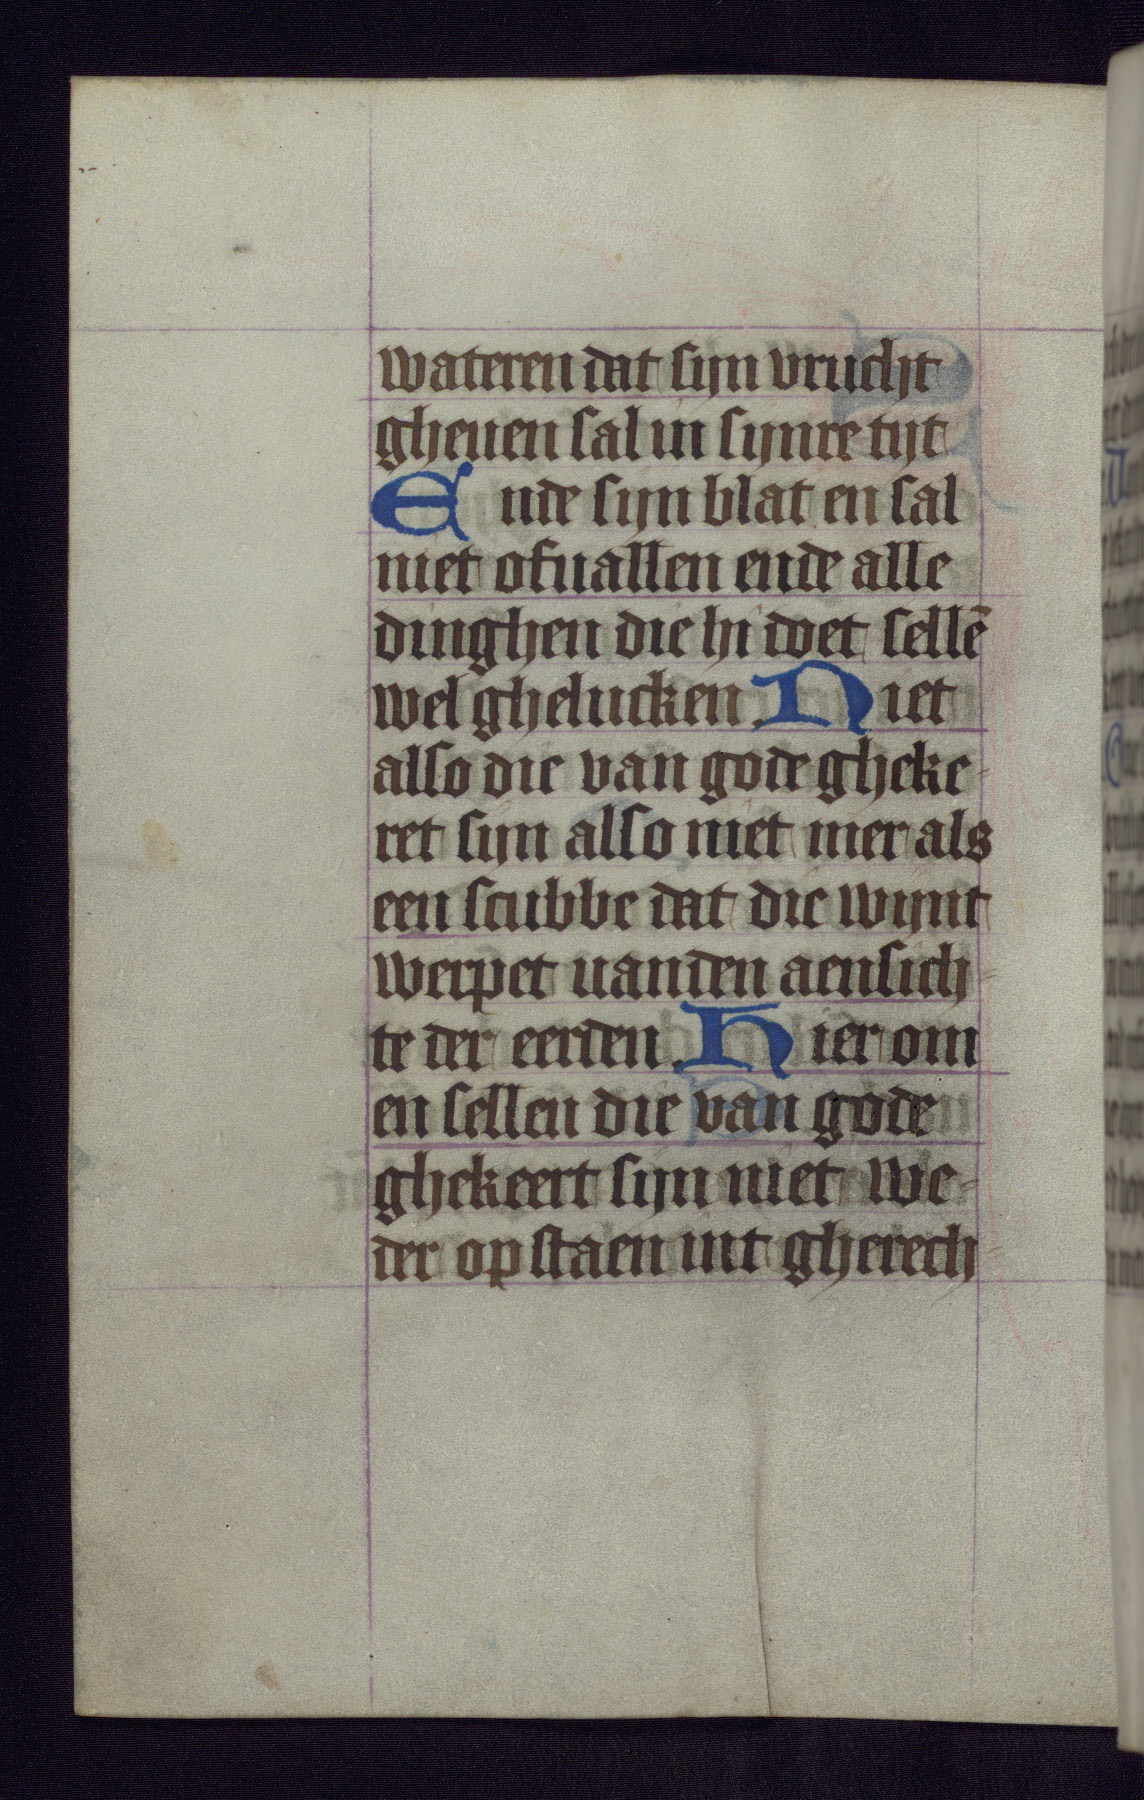 wateren dat sijn vrucht
gheuen sal in sijnre tijt
Ende sijn blat en sal
niet ofuallen ende alle
dinghen die hi doet sellē
wel ghelucken. Niet
also die van gode gheke-
ret sijn also niet mer als
een scubbe dat die wijnt
werpet uanden aensich-
te der eerden. Hier om
en sellen die van gode
ghekeert sijn niet we-
der opstaen uut gherech